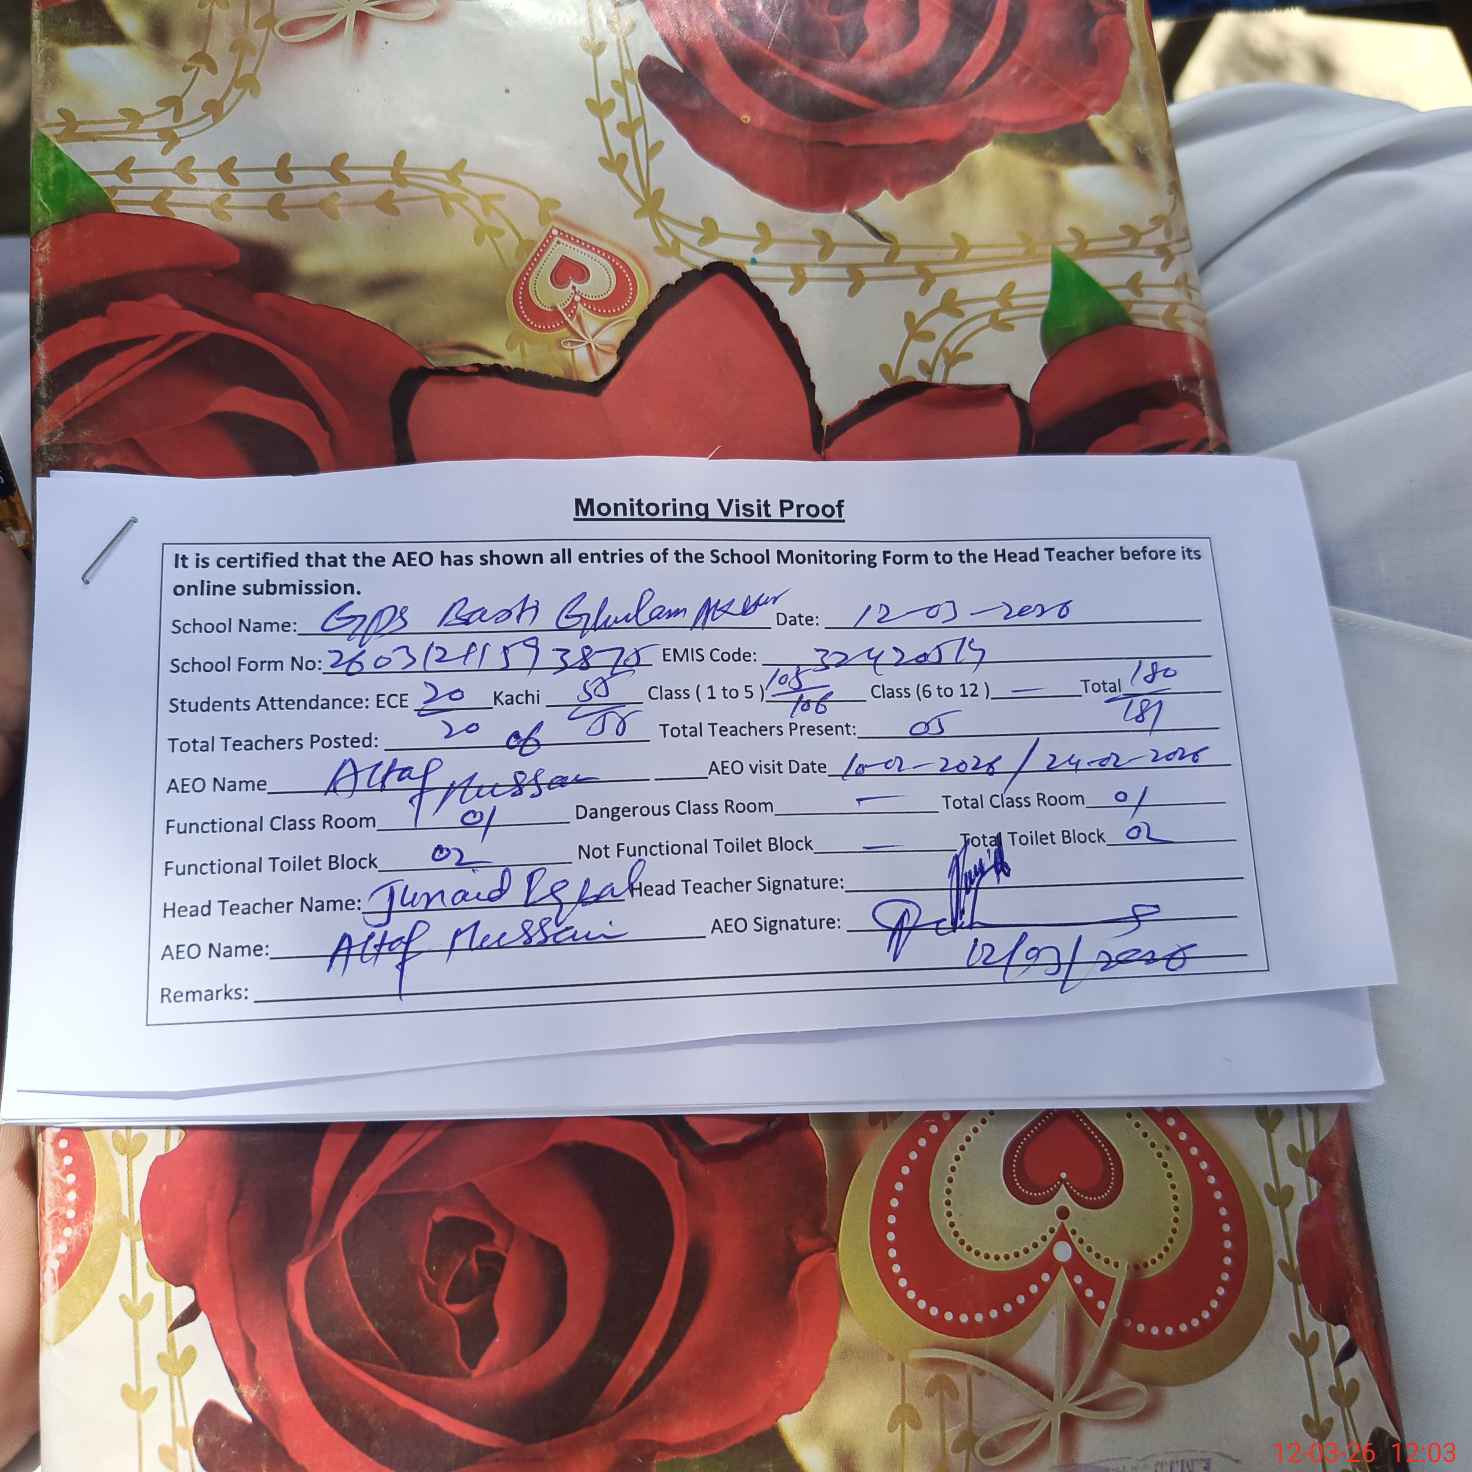 Monitoring Visit Proof
It is certified that the AEO has shown all entries of the School Monitoring Form to the Head Teacher before its
online submission.
School Name: GPS Basti Ghulam Akbar Date: 12-03-2026
School Form No: 26031211593875 EMIS Code: 32420519
Students Attendance: ECE 20/20 Kachi 55/55 Class ( 1 to 5 ) 105/106 Class (6 to 12 ) — Total 180/181
Total Teachers Posted: 06 Total Teachers Present: 05
AEO Name Altaf Hussain AEO visit Date 10-02-2026 / 24-02-2026
Functional Class Room 01 Dangerous Class Room — Total Class Room 01
Functional Toilet Block 02 Not Functional Toilet Block — Total Toilet Block 02
Head Teacher Name: Junaid Iqbal Head Teacher Signature:
AEO Name: Altaf Hussain AEO Signature:
12/03/2026
Remarks:
12-03-26 12:03